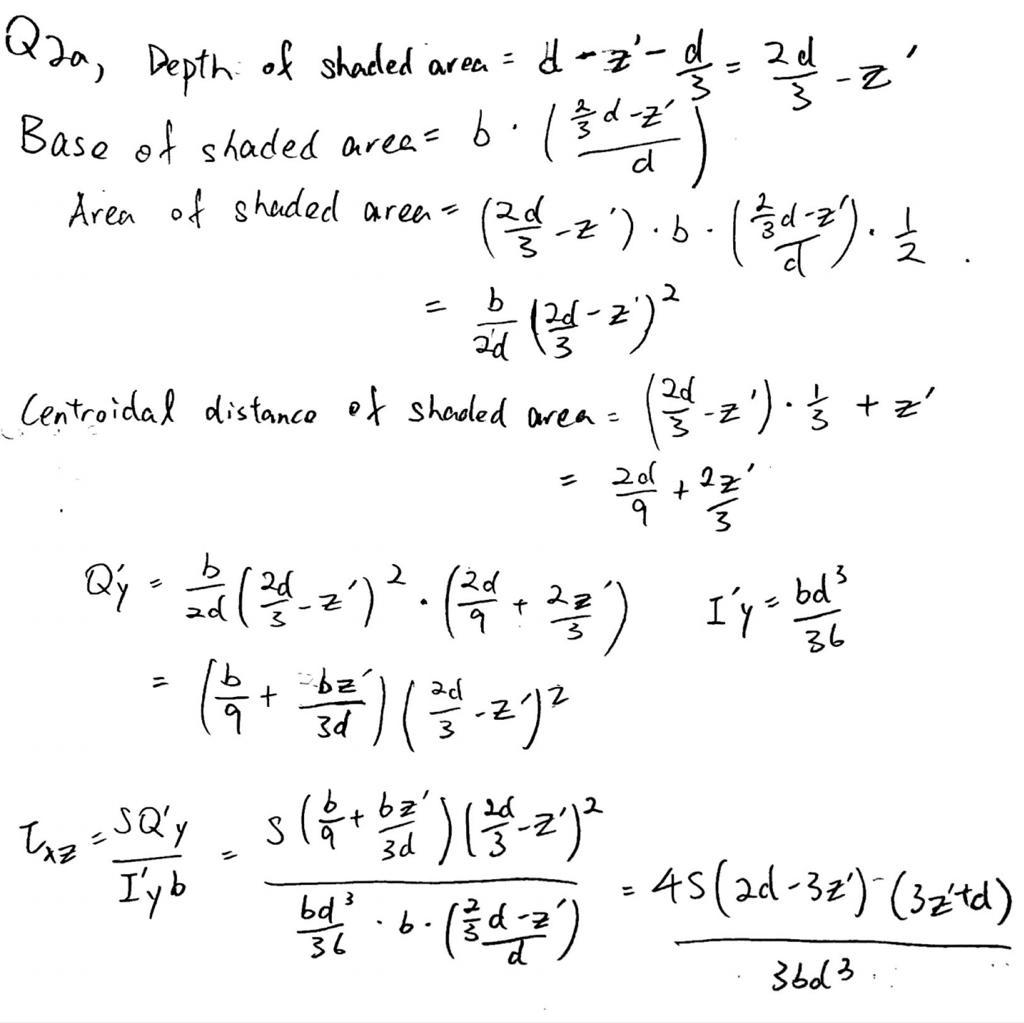 Q2a, Depth of shaded area = d - z' - d/3 = 2d/3 - z'
Base of shaded area = b · ((2/3 d - z')/d)
Area of shaded area = (2d/3 - z') · b · ((2/3 d - z')/d) · 1/2 .
= b/2d (2d/3 - z')²
Centroidal distance of shaded area = (2d/3 - z') · 1/3 + z'
= 2d/9 + 2z'/3
Q'y = b/2d (2d/3 - z')² · (2d/9 + 2z'/3) I'y = bd³/36
= (b/9 + bz'/3d) (2d/3 - z')²
τxz = SQ'y / I'y b = S(b/9 + bz'/3d)(2d/3 - z')² / (bd³/36 · b · ((2/3 d - z')/d)) = 4S(2d - 3z')(3z' + d) / 3bd³